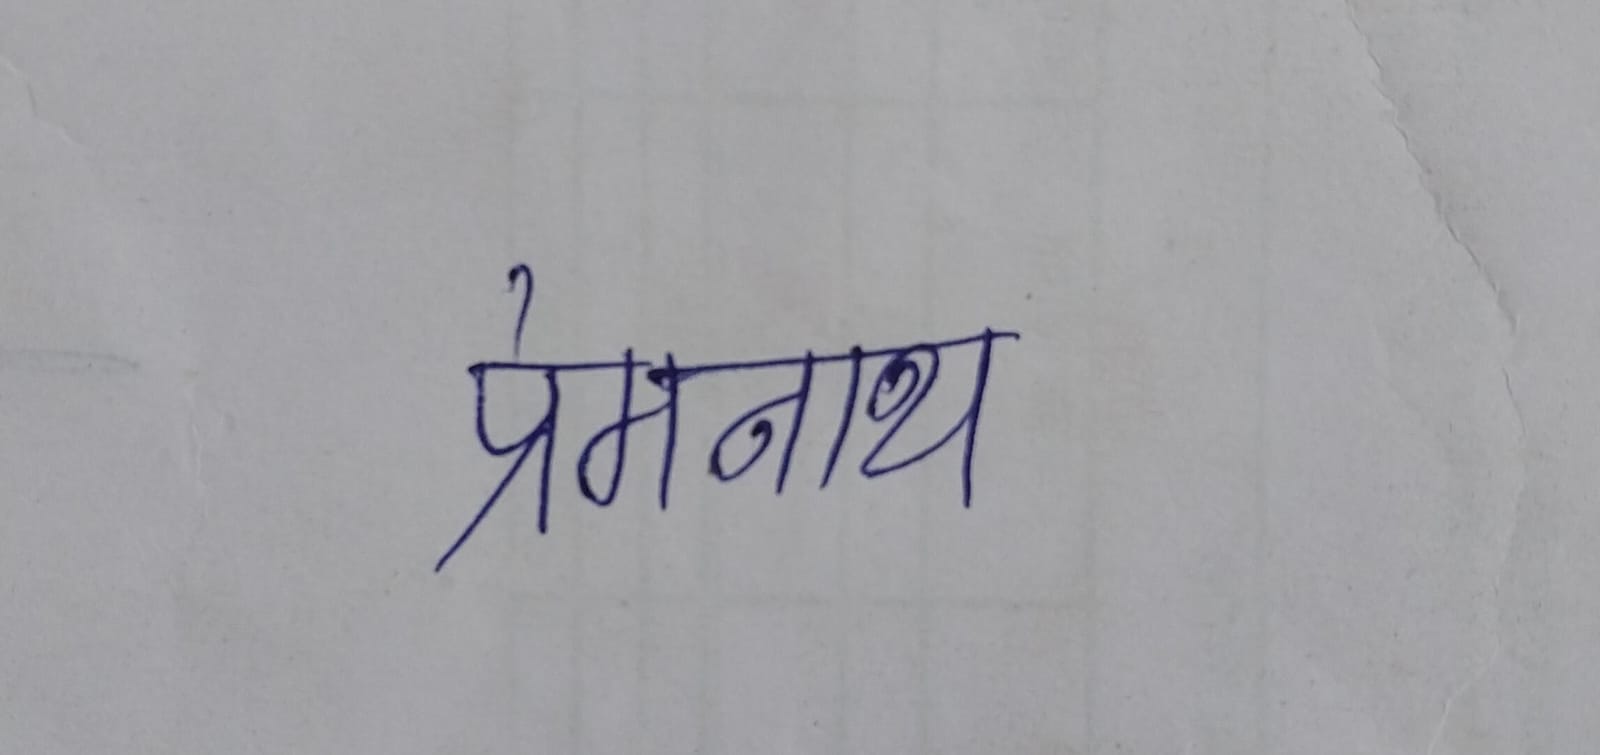 प्रेमनाथ